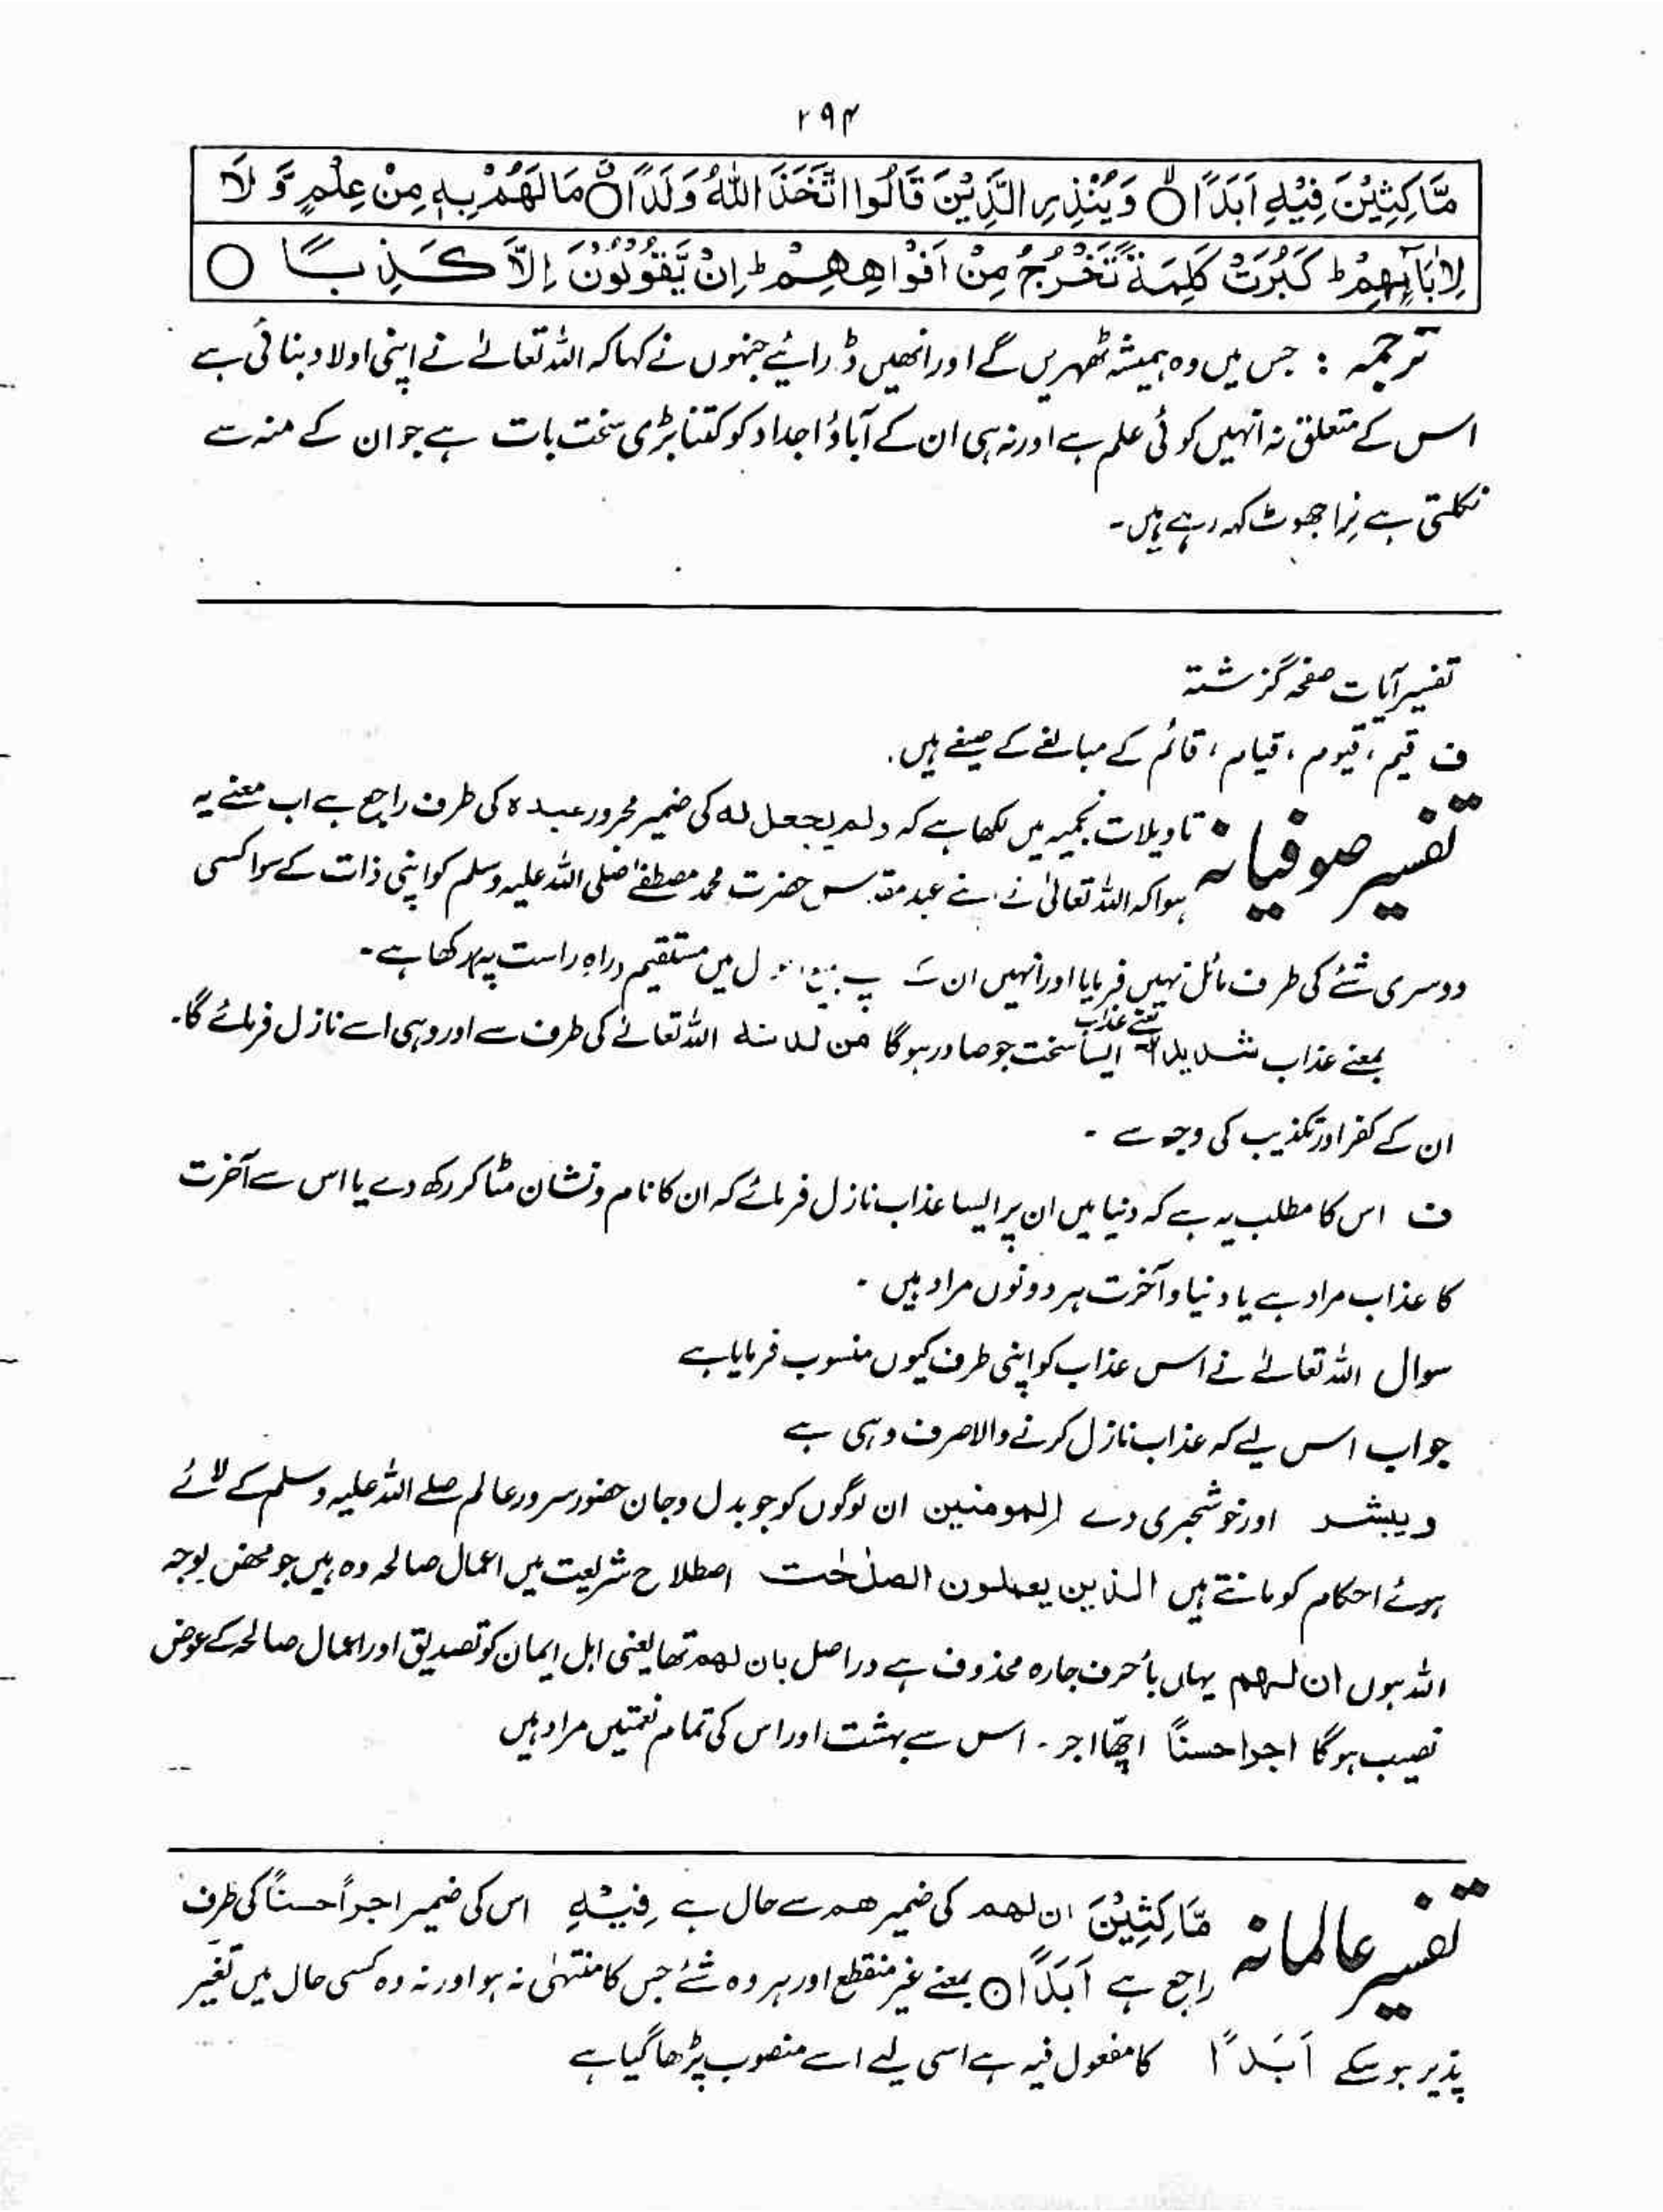 ۲۹۴
مَّاكِثِيْنَ فِيْهِ اَبَدًا ۙ○ وَّيُنْذِرَ الَّذِيْنَ قَالُوا اتَّخَذَ اللّٰهُ وَلَدًا ۗ○ مَا لَهُمْ بِهٖ مِنْ عِلْمٍ وَّ لَا
لِاٰبَآئِهِمْ ؕ كَبُرَتْ كَلِمَةً تَخْرُجُ مِنْ اَفْوَاهِهِمْ ؕ اِنْ يَّقُوْلُوْنَ اِلَّا كَذِبًا ○
ترجمہ : جس میں وہ ہمیشہ ٹھہریں گے اور انھیں ڈرائیے جنہوں نے کہا کہ اللہ تعالےٰ نے اپنی اولاد بنائی ہے
اس کے متعلق نہ انہیں کوئی علم ہے اور نہ ہی ان کے آباؤ اجداد کو کتنا بڑی سخت بات ہے جو ان کے منہ سے
نکلتی ہے نِرا جھوٹ کہہ رہے ہیں۔
تفسیر آیات صفحہ گزشتہ
ف قیم ، قیوم ، قیام ، قائم کے مبالغے کے صیغے ہیں۔
تفسیر صوفیانہ تاویلات نجمیہ میں لکھا ہے کہ ولم یجعل لہ کی ضمیر مجرور عبدہ کی طرف راجع ہے اب معنے یہ
ہوا کہ اللہ تعالیٰ نے عبد مقدس حضرت محمد مصطفےٰ صلی اللہ علیہ وسلم کو اپنی ذات کے سوا کسی
دوسری شئے کی طرف مائل نہیں فرمایا اور انہیں ان میں مستقیم دراہِ راست پہ رکھا ہے۔
بمعنے عذاب شدیدا یعنے عذاب ایسا سخت جو صادر ہوگا من لدنہ اللہ تعالےٰ کی طرف سے اور وہی اسے نازل فرمائے گا۔
ان کے کفر اور تکذیب کی وجہ سے ۔
ف اس کا مطلب یہ ہے کہ دنیا میں ان پر ایسا عذاب نازل فرمائے کہ ان کا نام و نشان مٹا کر رکھ دے یا اس سے آخرت
کا عذاب مراد ہے یا دنیا و آخرت ہر دونوں مراد ہیں ۔
سوال اللہ تعالےٰ نے اس عذاب کو اپنی طرف کیوں منسوب فرمایا ہے
جواب اس لیے کہ عذاب نازل کرنے والا صرف وہی ہے
ویبشر اور خوشخبری دے المومنین ان لوگوں کو جو بدل وجان حضور سرور عالم صلے اللہ علیہ وسلم کے لائے
ہوئے احکام کو مانتے ہیں الذین یعملون الصلٰحٰت اصطلاح شریعت میں اعمال صالحہ وہ ہیں جو محض بوجہ
اللہ ہوں ان لہم یہاں بأ حرف جارہ محذوف ہے دراصل بان لھم تھا یعنی اہل ایمان کو تصدیق اور اعمال صالحہ کے عوض
نصیب ہوگا اجرا حسناً اچھّا اجر ۔ اس سے بہشت اور اس کی تمام نعمتیں مراد ہیں
تفسیر عالمانہ مَّاكِثِيْنَ ان لھم کی ضمیر ھم سے حال ہے فِيْهِ اس کی ضمیر اجراً حسناً کی طرف
راجع ہے اَبَدًا ○ بمعنے غیر منقطع اور ہر وہ شئے جس کا منتہیٰ نہ ہو اور نہ وہ کسی حال میں تغیر
پذیر ہو سکے اَبَدًا کا مفعول فیہ ہے اسی لیے اسے منصوب پڑھا گیا ہے